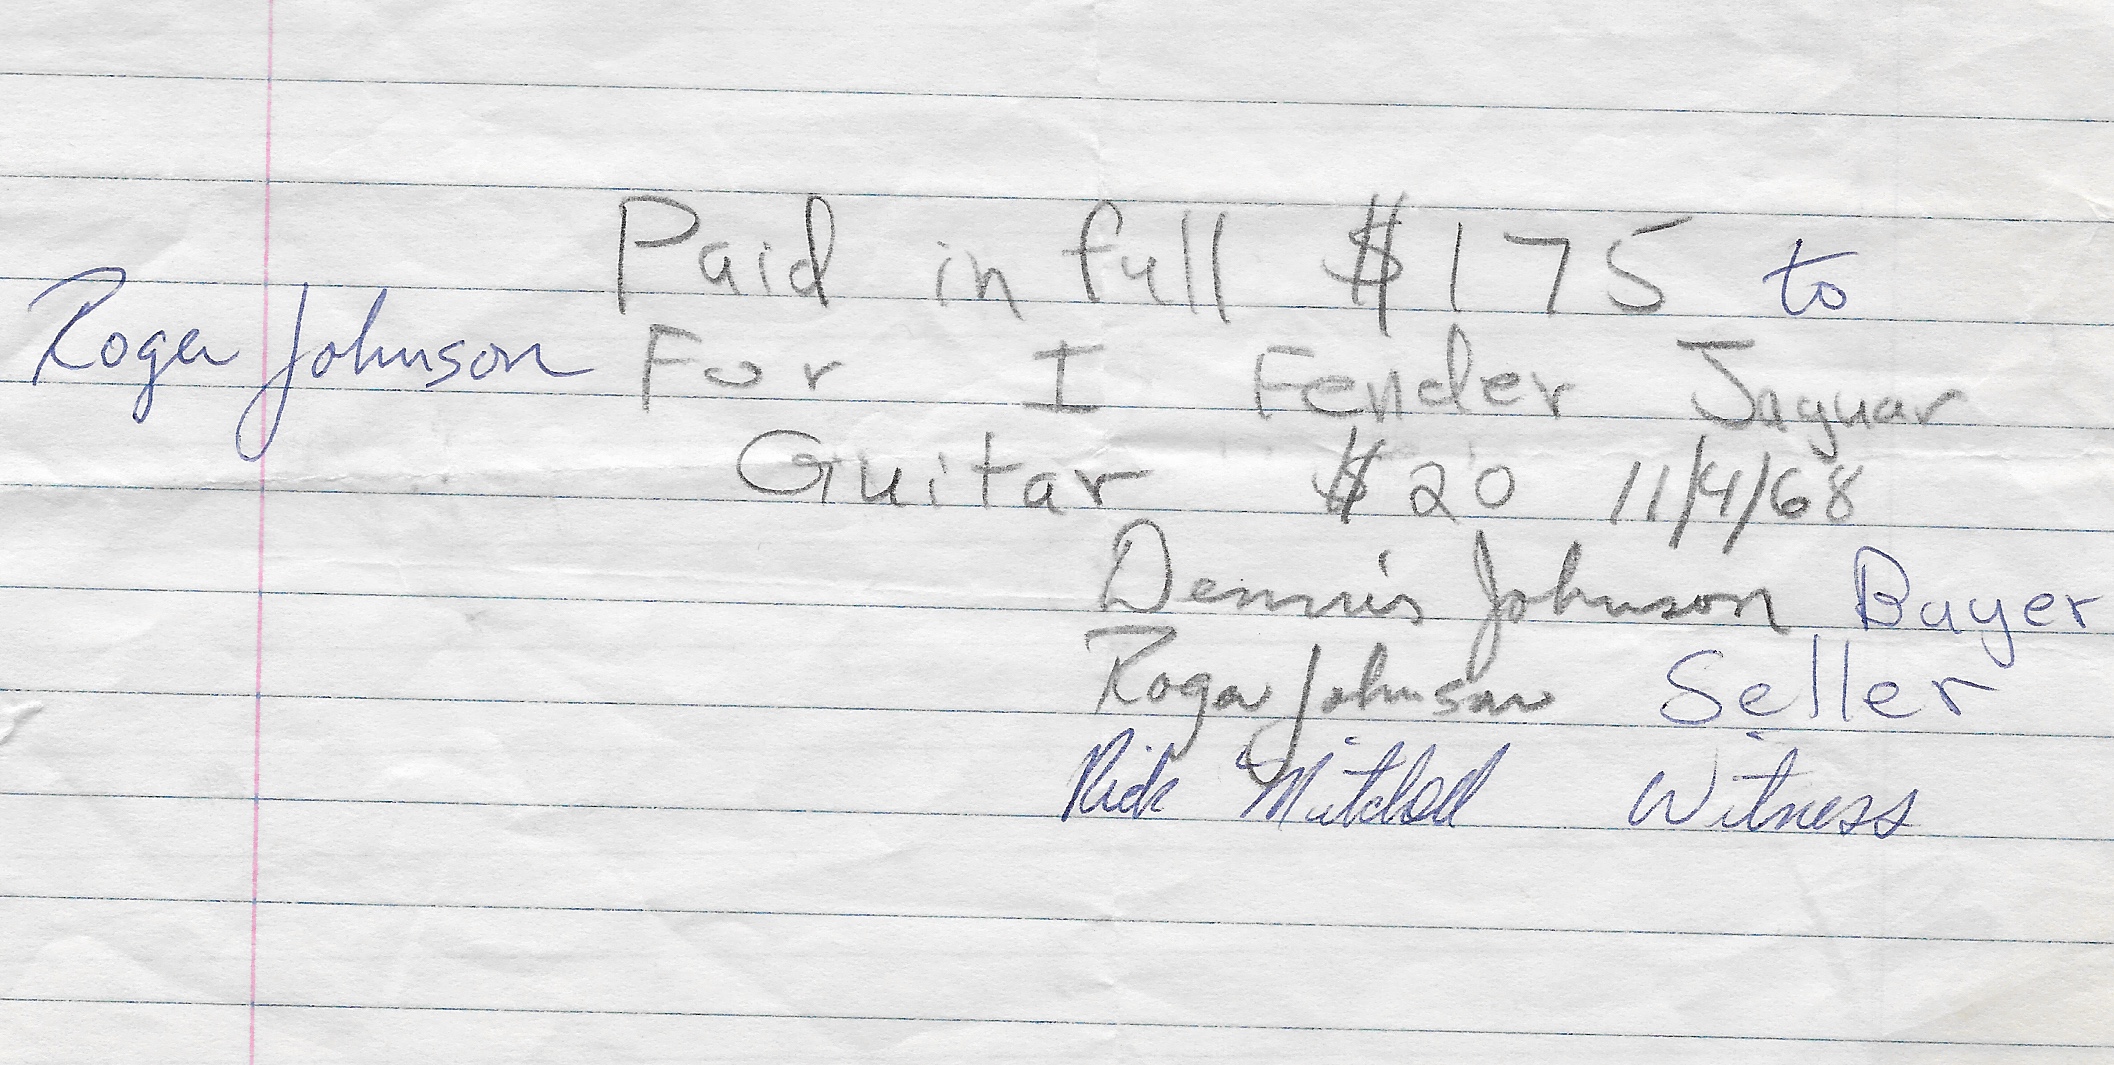 Paid in full $175 to
Roger Johnson For I Fender Jaguar
Guitar $20 11/4/68
Dennis Johnson Buyer
Roger Johnson Seller
Rick Mitchell Witness